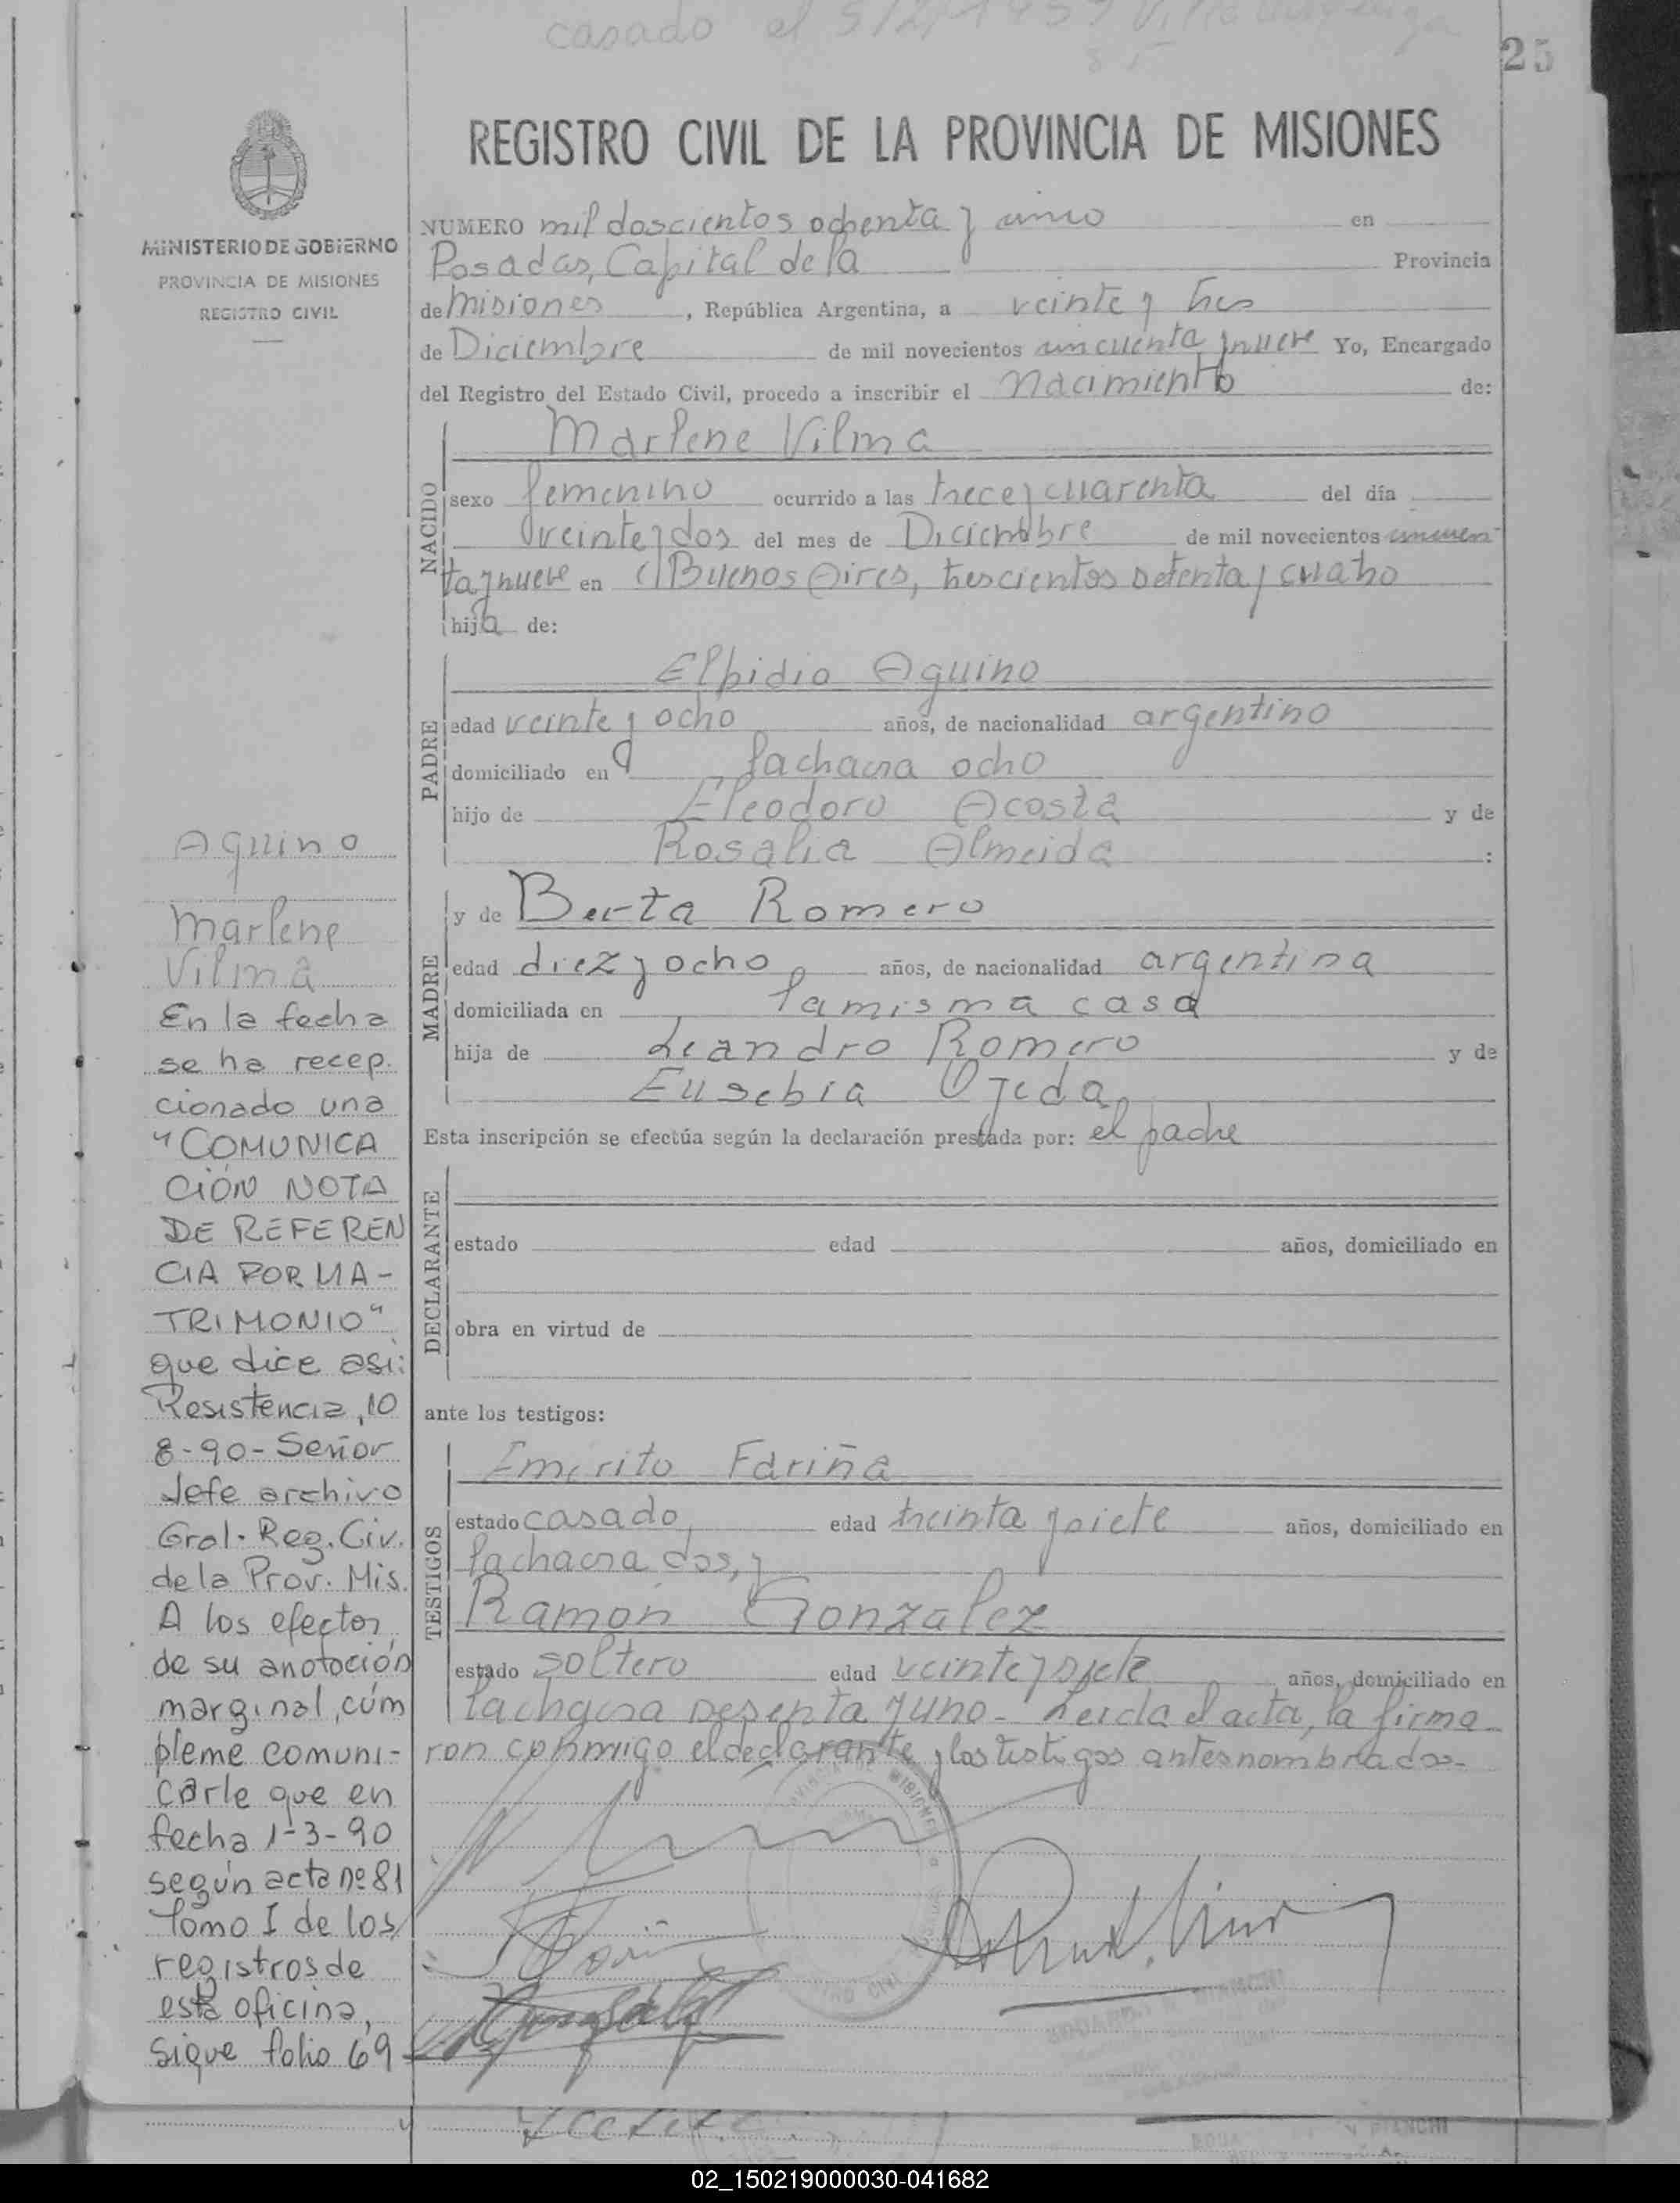 casado el 5/2/1959
25
REGISTRO CIVIL DE LA PROVINCIA DE MISIONES
MINISTERIO DE GOBIERNO
PROVINCIA DE MISIONES
REGISTRO CIVIL
NUMERO mil doscientos ochenta y uno en
Posadas, Capital de la Provincia
de Misiones, República Argentina, a veinte y tres
de Diciembre de mil novecientos cincuenta y nueve Yo, Encargado
del Registro del Estado Civil, procedo a inscribir el Nacimiento de:
NACIDO
Marlene Vilma
sexo femenino ocurrido a las trece y cuarenta del día
veinte y dos del mes de Diciembre de mil novecientos cincuen-
ta y nueve en c/ Buenos Aires, trescientos setenta y cuatro
hija de:
PADRE
Elpidio Aquino
edad veinte y ocho años, de nacionalidad argentino
domiciliado en la chacra ocho
hijo de Eleodoro Acosta y de
Rosalia Almeida :
MADRE
y de Berta Romero
edad diez y ocho años, de nacionalidad argentina
domiciliada en la misma casa
hija de Leandro Romero y de
Eusebia Ojeda
Esta inscripción se efectúa según la declaración prestada por: el padre
DECLARANTE
estado edad años, domiciliado en
obra en virtud de
ante los testigos:
TESTIGOS
Emerito Fariña
estado casado, edad treinta y siete años, domiciliado en
la chacra dos, y
Ramon Gonzalez
estado soltero edad veinte y siete años, domiciliado en
la chacra sesenta y uno - Leida el acta, la firma-
ron conmigo el declarante y los testigos antes nombrados-
Aquino
Marlene
Vilma
En la fecha
se ha recep.
cionado una
"COMUNICA
CIÓN NOTA
DE REFEREN
CIA POR MA-
TRIMONIO"
que dice asi:
Resistencia, 10
8-90- Señor
Jefe archivo
Gral. Reg. Civ.
de la Prov. Mis.
A los efectos
de su anotación
marginal, cúm
pleme comuni-
carle que en
fecha 1-3-90
según acta nº 81
Tomo I de los
registros de
esta oficina,
Sigue folio 69
BIANCHI
02_150219000030-041682